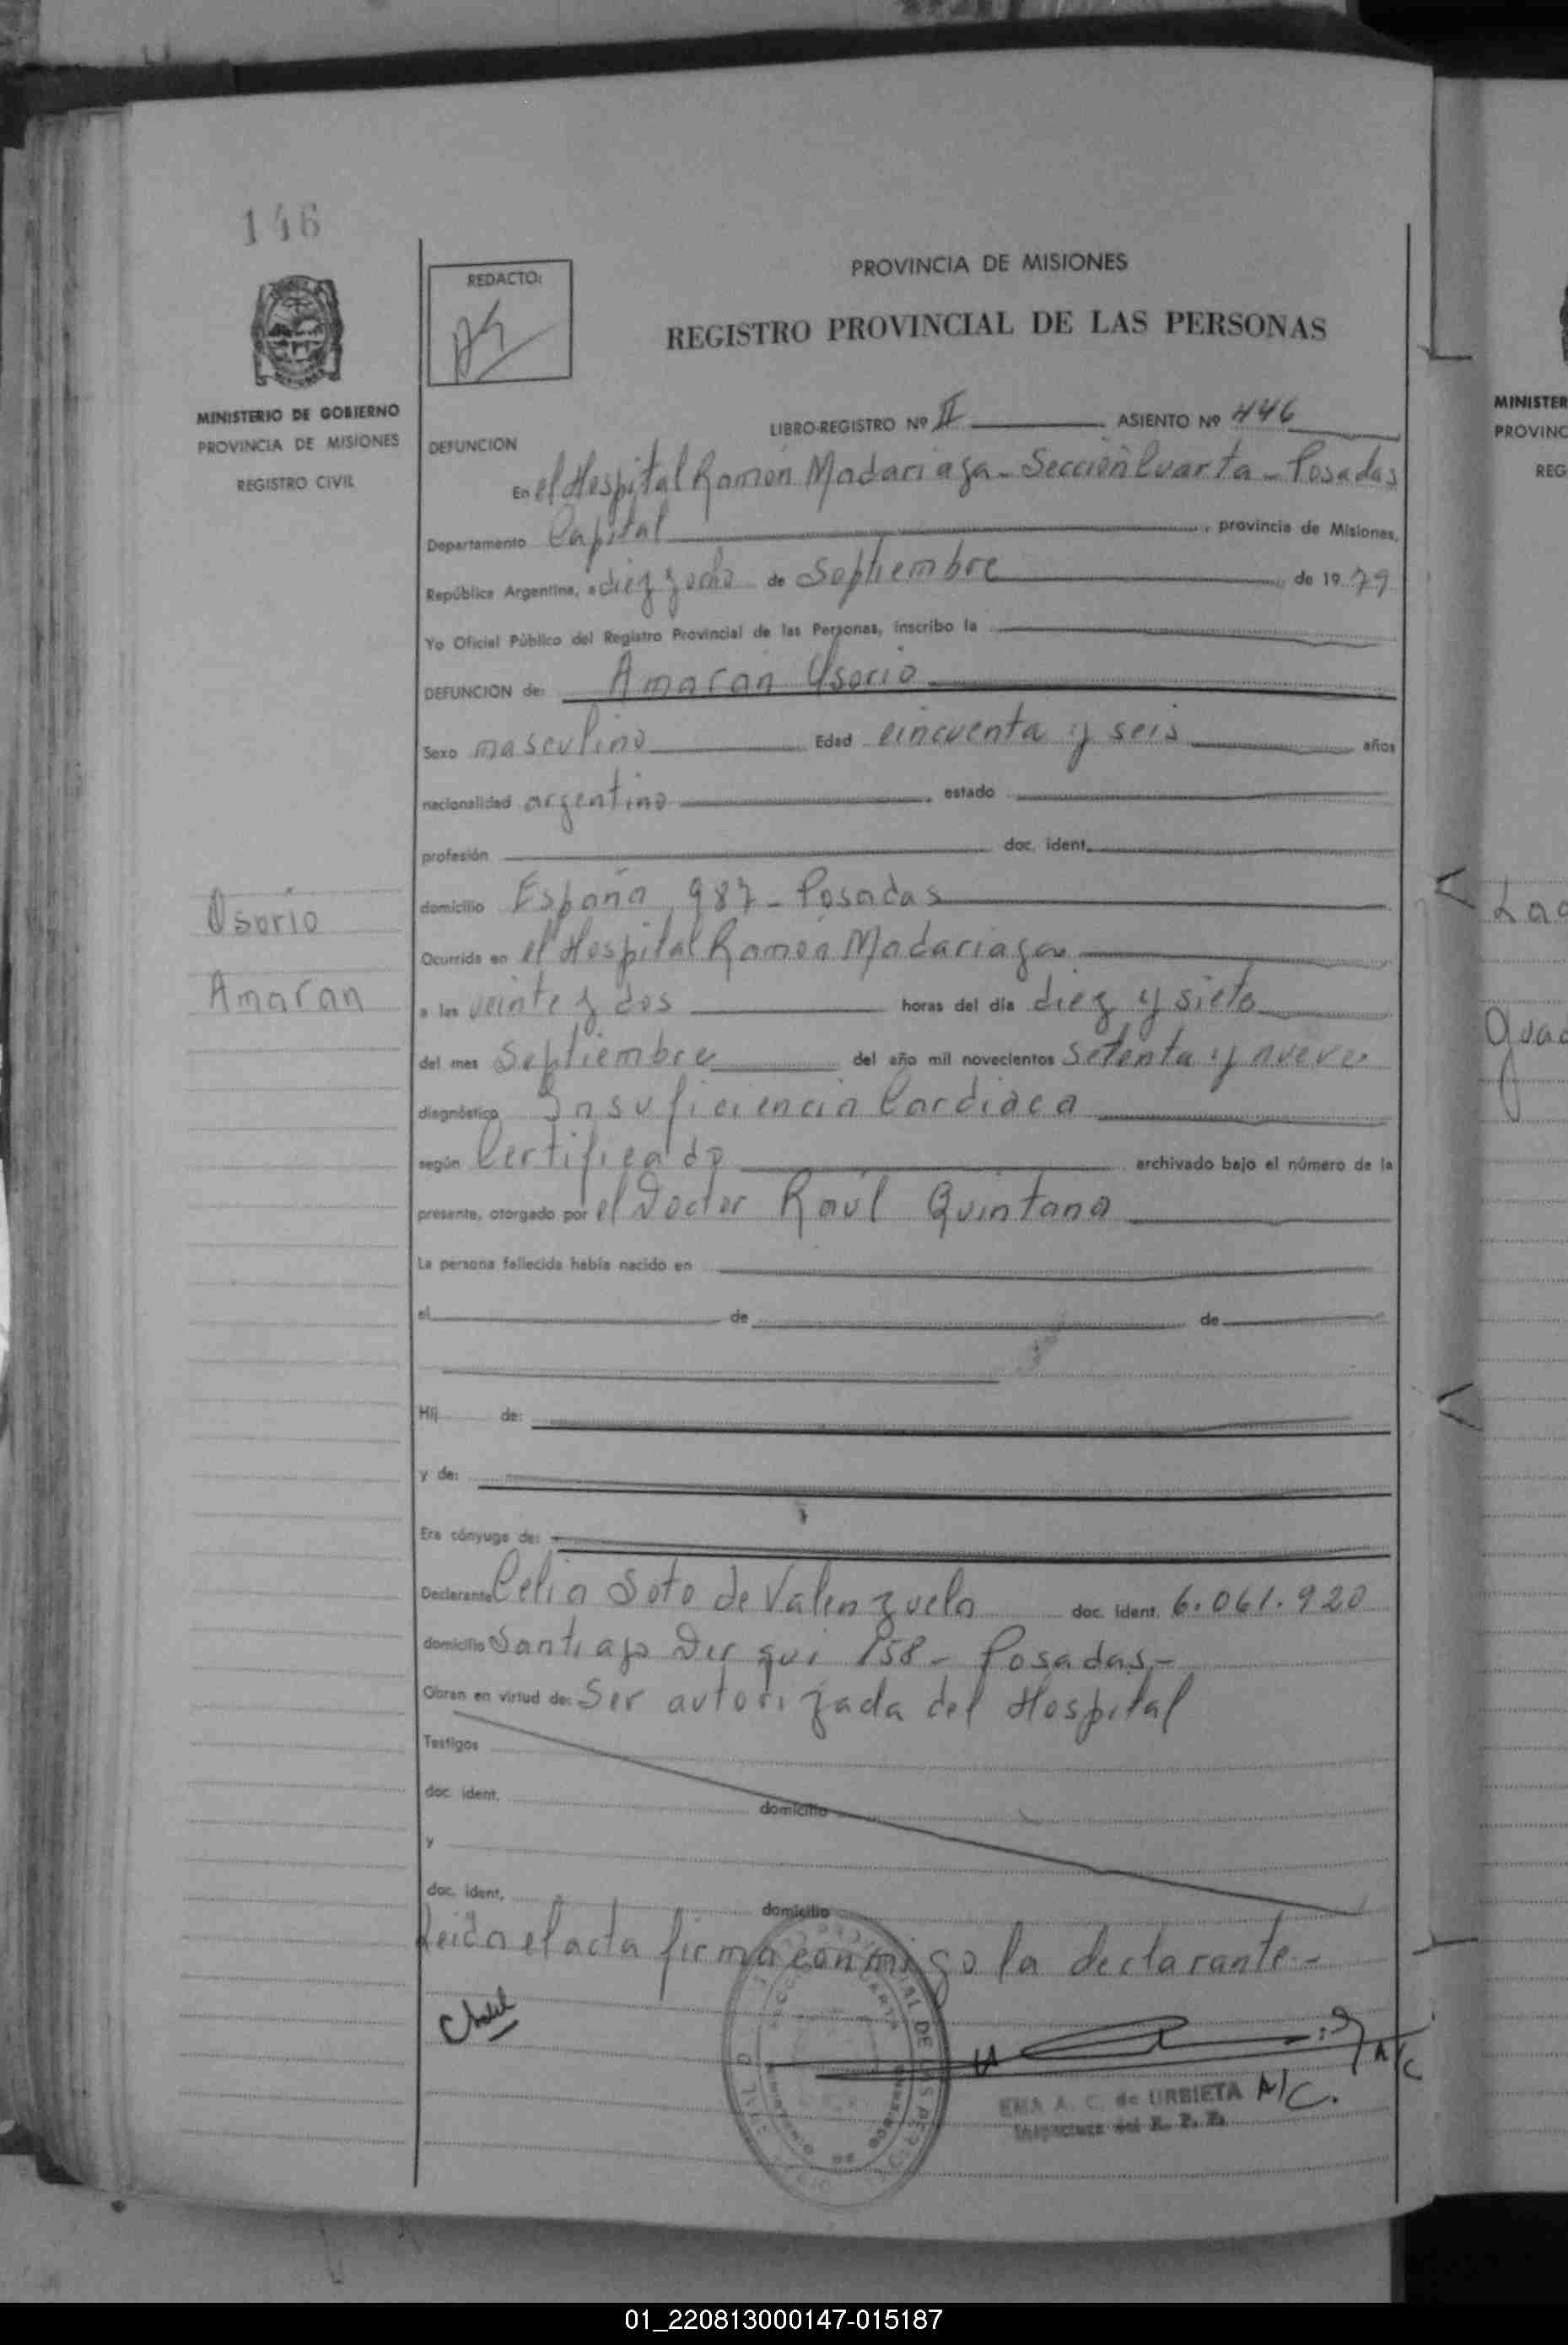 146
REDACTO:
PROVINCIA DE MISIONES
REGISTRO PROVINCIAL DE LAS PERSONAS
MINISTERIO DE GOBIERNO
PROVINCIA DE MISIONES
REGISTRO CIVIL
LIBRO-REGISTRO Nº II ASIENTO Nº 446
DEFUNCION
En el Hospital Ramón Madariaga - Sección Cuarta - Posadas
Departamento Capital, provincia de Misiones,
República Argentina, a diez y ocho de Septiembre de 1979
Yo Oficial Público del Registro Provincial de las Personas, inscribo la
DEFUNCION de: Amaran Osorio
Sexo masculino Edad cincuenta y seis años
nacionalidad argentino, estado
profesión doc. ident.
domicilio España 987 - Posadas
Osorio
Amaran
Ocurrida en el Hospital Ramón Madariaga
a las veinte y dos horas del día diez y siete
del mes Septiembre del año mil novecientos setenta y nueve
diagnóstico Insuficiencia Cardiaca
según Certificado archivado bajo el número de la
presente, otorgado por el Doctor Raúl Quintana
La persona fallecida había nacido en
el de de
Hij de:
y de:
Era cónyuge de:
Declarante Celia Soto de Valenzuela doc. ident. 6.061.920
domicilio Santiago Derqui 158 - Posadas.-
Obran en virtud de: Ser autorizada del Hospital
Testigos
doc. ident. domicilio
y
doc. ident. domicilio
Leida el acta firma conmigo la declarante.-
A/C
EMA A. C. de URBIETA A/C.
MINISTER
PROVINC
REG
01_220813000147-015187